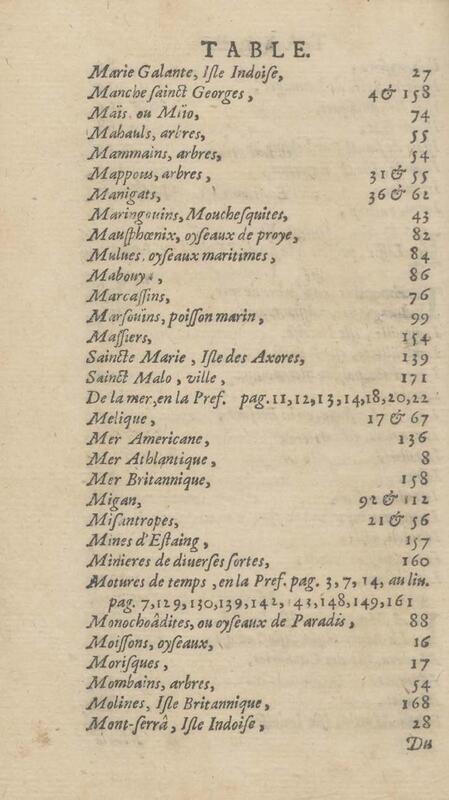 TABLE.
Marie Galante, Isle Indoise, 27
Manche sainct Georges, 4 & 158
Maïs ou Miïo, 74
Mahauls, arbres, 55
Mammains, arbres, 54
Mappous, arbres, 31 & 55
Manigats, 36 & 62
Maringouins, Mouchesquites, 43
Mausphœnix, oyseaux de proye, 82
Mulues, oyseaux maritimes, 84
Mabouy, 86
Marcassins, 76
Marsoüins, poisson marin, 99
Massiers, 154
Saincte Marie, Isle des Axores, 139
Sainct Malo, ville, 171
De la mer, en la Pref. pag. 11, 12, 13, 14, 18, 20, 22
Melique, 17 & 67
Mer Americane, 136
Mer Athlantique, 8
Mer Britannique, 158
Migan, 92 & 112
Misantropes, 21 & 56
Mines d'Estaing, 157
Minieres de diuerses sortes, 160
Motures de temps, en la Pref. pag. 3, 7, 14, au liu.
pag. 7, 129, 130, 139, 142, 43, 148, 149, 161
Monochoâdites, ou oyseaux de Paradis, 88
Moissons, oyseaux, 16
Morisques, 17
Mombains, arbres, 54
Molines, Isle Britannique, 168
Mont-serrâ, Isle Indoise, 28
Du